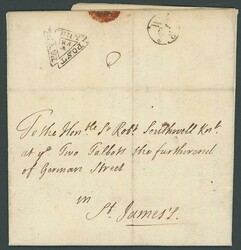 PENY POST PAYD
To the Honble Sr Robt Southwell Knt.
at ye Two Talbots the furtherend
of German Street
in
St. James's